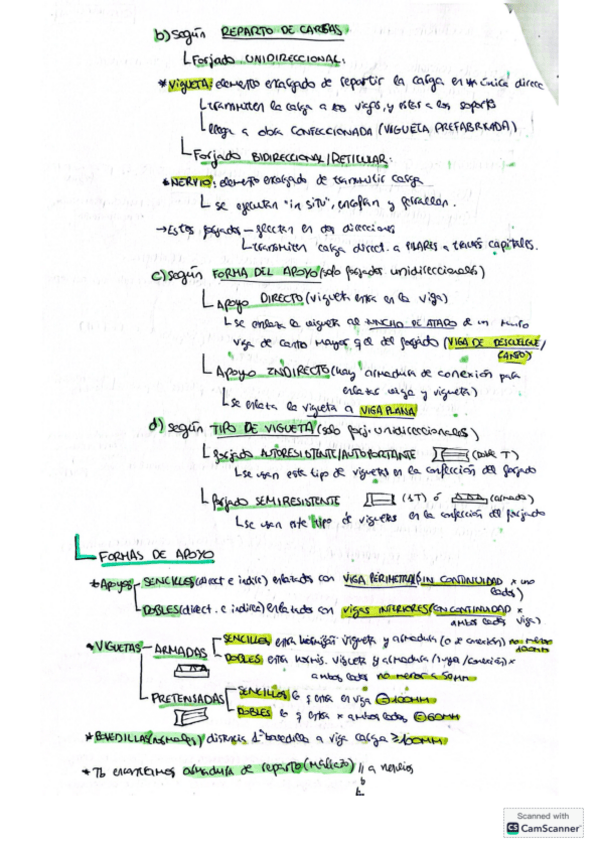 b) según REPARTO DE CARGAS
Forjado UNIDIRECCIONAL:
* VIGUETA: elemento encargado de repartir la carga en una única direcc
transmiten la carga a las vigas, y estas a los soporte
llega a obra CONFECCIONADA (VIGUETA PREFABRICADA)
Forjado BIDIRECCIONAL/RETICULAR:
* NERVIO: elemento encargado de transmitir carga
se ejecutan "in situ", encofran y ferrallan.
→ Estos forjados - flectan en dos direcciones
transmiten carga direct. a PILARES a través capiteles.
c) según FORMA DEL APOYO (solo forjados unidireccionales)
Apoyo DIRECTO (vigueta entra en la viga)
se enlaza la vigueta al ZUNCHO DE ATADO de un muro
viga de canto mayor q el del forjado (VIGA DE DESCUELGUE/
CANTO)
Apoyo INDIRECTO (hay armadura de conexión para
enlazar viga y vigueta)
se enlaza la vigueta a VIGA PLANA
d) según TIPO DE VIGUETA (solo forj. unidireccionales)
forjado AUTORESISTENTE/AUTOPORTANTE (doble T)
se usan este tipo de viguetas en la confección del forjado
forjado SEMIRESISTENTE (1T) ó (armada)
se usan este tipo de viguetas en la confección del forjado
FORMAS DE APOYO
* Apoyos - SENCILLOS (direct e indire) enlazados con VIGA PERIMETRAL (SIN CONTINUIDAD x uno
lados)
DOBLES (direct. e indire) enlazados con vigas INTERIORES (CON CONTINUIDAD x
ambos lados viga)
* VIGUETAS - ARMADAS SENCILLOS entra vigueta y armadura (o de conexión) no menor
100MM
DOBLES entra hormig. vigueta y armadura / /conexión) x
ambos lados no menor a 50MM
PRETENSADAS SENCILLOS lo q entra en viga 100MM
DOBLES lo q entra x ambos lados 60MM
* BOVEDILLAS (normales) distancia 1ª bovedilla a viga carga ≥100MM
* Tb encontramos armadura de reparto (mallazo) // a nervios
Scanned with
CS CamScanner